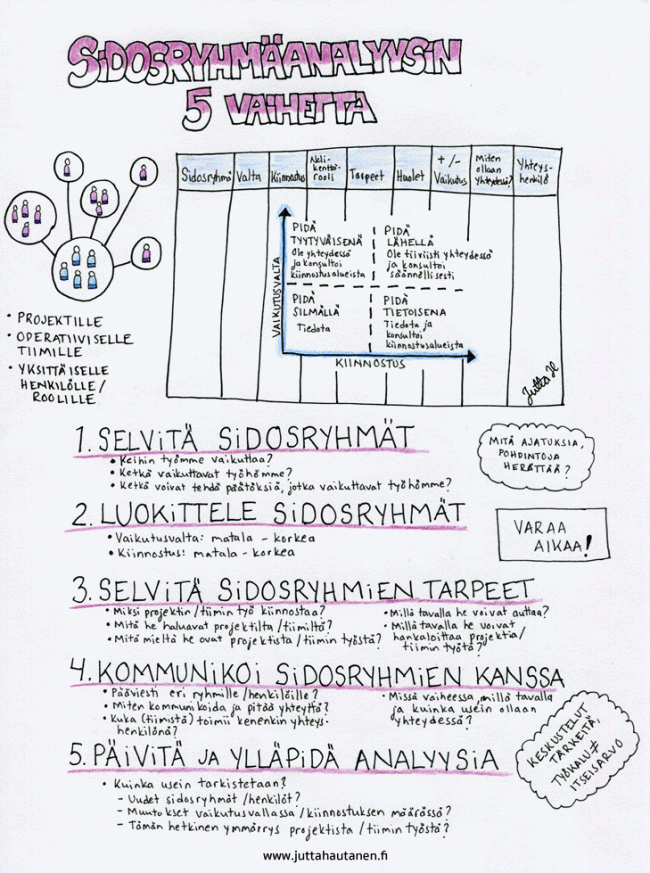 SIDOSRYHMÄANALYYSIN
5 VAIHETTA
Sidosryhmä
Valta
Kiinnostus
Neli-
kenttä-
rooli
Tarpeet
Huolet
+ / -
Vaikutus
Miten
ollaan
yhteydessä?
Yhteys-
henkilö
VAIKUTUSVALTA
PIDÄ
TYYTYVÄISENÄ
Ole yhteydessä
ja konsultoi
kiinnostusalueista
PIDÄ
LÄHELLÄ
Ole tiiviisti yhteydessä
ja konsultoi
säännöllisesti
PIDÄ
SILMÄLLÄ
Tiedota
PIDÄ
TIETOISENA
Tiedota ja
konsultoi
kiinnostusalueista
KIINNOSTUS
Jutta H
• PROJEKTILLE
• OPERATIIVISELLE
TIIMILLE
• YKSITTÄISELLE
HENKILÖLLE/
ROOLILLE
1. SELVITÄ SIDOSRYHMÄT
• Keihin työmme vaikuttaa?
• Ketkä vaikuttavat työhömme?
• Ketkä voivat tehdä päätöksiä, jotka vaikuttavat työhömme?
MITÄ AJATUKSIA,
POHDINTOJA
HERÄTTÄÄ?
2. LUOKITTELE SIDOSRYHMÄT
• Vaikutusvalta: matala - korkea
• Kiinnostus: matala - korkea
VARAA
AIKAA!
3. SELVITÄ SIDOSRYHMIEN TARPEET
• Miksi projektin/tiimin työ kiinnostaa?
• Mitä he haluavat projektilta/tiimiltä?
• Mitä mieltä he ovat projektista/tiimin työstä?
• Millä tavalla he voivat auttaa?
• Millä tavalla he voivat
hankaloittaa projektia/
tiimin työtä?
4. KOMMUNIKOI SIDOSRYHMIEN KANSSA
• Pääviesti eri ryhmille/henkilöille?
• Miten kommunikoida ja pitää yhteyttä?
• Kuka (tiimistä) toimii kenenkin yhteys-
henkilönä?
• Missä vaiheessa, millä tavalla
ja kuinka usein ollaan
yhteydessä?
5. PÄIVITÄ JA YLLÄPIDÄ ANALYYSIA
• Kuinka usein tarkistetaan?
- Uudet sidosryhmät/henkilöt?
- Muutokset vaikutusvallassa/kiinnostuksen määrässä?
- Tämän hetkinen ymmärrys projektista/tiimin työstä?
KESKUSTELUT
TÄRKEITÄ,
TYÖKALU ≠
ITSEISARVO
www.juttahautanen.fi